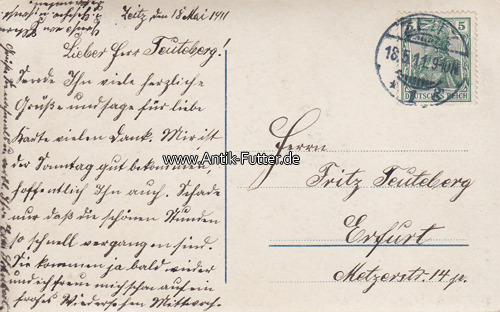 Zeitz, den 18 Mai 1911
Lieber Herr Teuteberg!
Sende Ihn viele herzliche
Grüße und sage für liebe
Karte vielen Dank. Mir ist
der Sonntag gut bekommen,
hoffentlich Ihn auch. Schade
nur daß die schönen Stunden
so schnell vergangen sind.
Sie kommen ja bald wieder
und ich freue mich schon auf ein
frohes Wiedersehen Mittwoch.
ZEITZ
18.5.11.9-10
5
DEUTSCHES REICH
www.Antik-Futter.de
Herrn
Fritz Teuteberg
Erfurt
Metzerstr. 14 p.